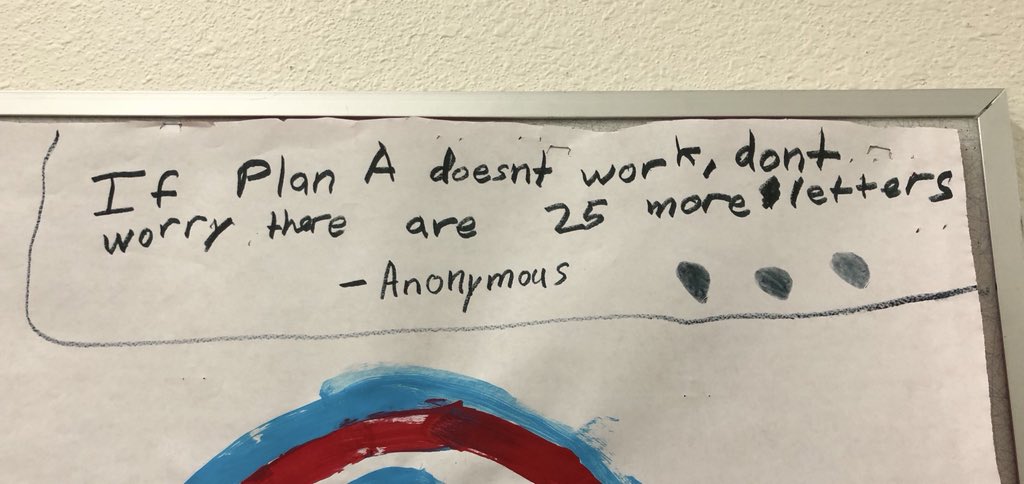 If Plan A doesnt work, dont
worry there are 25 more letters
- Anonymous